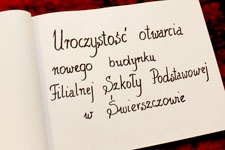 Uroczystość otwarcia
nowego budynku
Filialnej Szkoły Podstawowej
w Świerszczowie